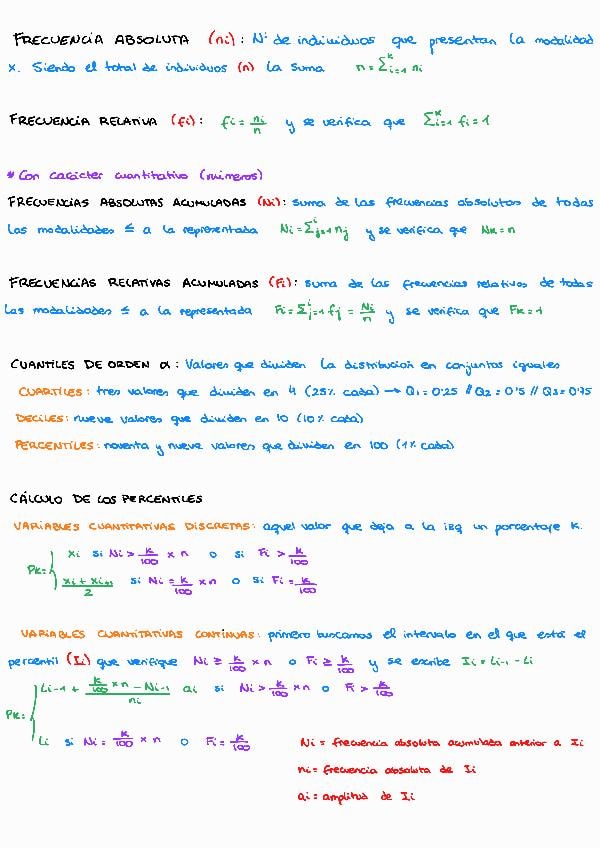 FRECUENCIA ABSOLUTA (ni): Nº de individuos que presentan la modalidad
x. Siendo el total de individuos (n) la suma n = Σᵏᵢ₌₁ ni
FRECUENCIA RELATIVA (fi): fi = ni/n y se verifica que Σᵏᵢ₌₁ fi = 1
* Con carácter cuantitativo (números)
FRECUENCIAS ABSOLUTAS ACUMULADAS (Ni): suma de las frecuencias absolutas de todas
las modalidades ≤ a la representada Ni = Σⁱⱼ₌₁ nj y se verifica que Nk = n
FRECUENCIAS RELATIVAS ACUMULADAS (Fi): suma de las frecuencias relativas de todas
las modalidades ≤ a la representada Fi = Σⁱⱼ₌₁ fj = Ni/n y se verifica que Fk = 1
CUANTILES DE ORDEN α: Valores que dividen la distribución en conjuntos iguales
CUARTILES: tres valores que dividen en 4 (25% cada) → Q1 = 0'25 // Q2 = 0'5 // Q3 = 0'75
DECILES: nueve valores que dividen en 10 (10% cada)
PERCENTILES: noventa y nueve valores que dividen en 100 (1% cada)
CÁLCULO DE LOS PERCENTILES
VARIABLES CUANTITATIVAS DISCRETAS: aquel valor que deja a la izq un porcentaje K.
Pk = { xi si Ni > k/100 x n o si Fi > k/100
(xi + xi+1)/2 si Ni = k/100 x n o si Fi = k/100
VARIABLES CUANTITATIVAS CONTINUAS: primero buscamos el intervalo en el que está el
percentil (Ii) que verifique Ni ≥ k/100 x n o Fi ≥ k/100 y se escribe Ii = Li-1 - Li
Pk = { Li-1 + (k/100 x n - Ni-1)/ni ai si Ni > k/100 x n o Fi > k/100
Li si Ni = k/100 x n o Fi = k/100
Ni = frecuencia absoluta acumulada anterior a Ii
ni = frecuencia absoluta de Ii
ai = amplitud de Ii